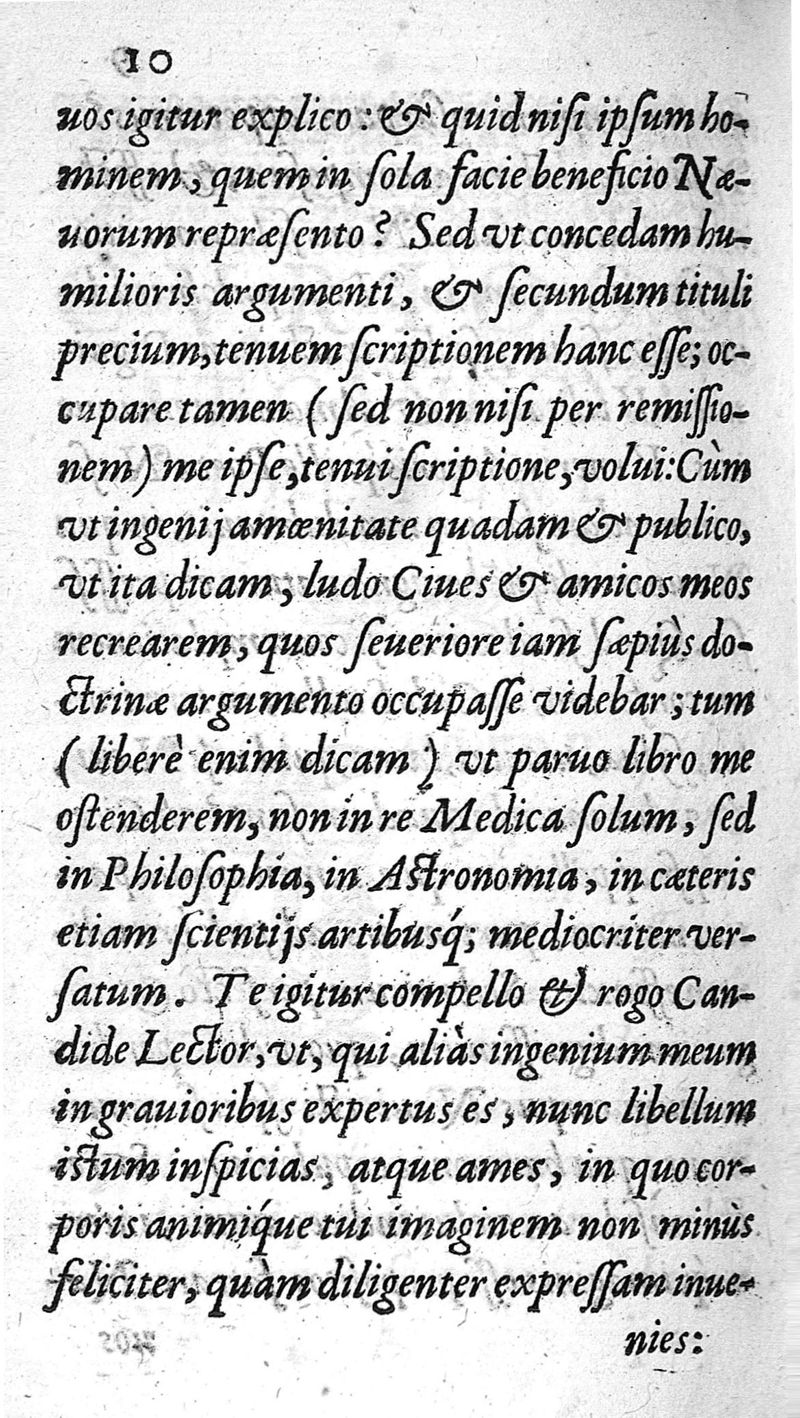 10
uos igitur explico: & quid nisi ipsum ho-
minem, quem in sola facie beneficio Næ-
uorum repræsento? Sed vt concedam hu-
milioris argumenti, & secundum tituli
precium, tenuem scriptionem hanc esse; oc-
cupare tamen (sed non nisi per remissio-
nem) me ipse, tenui scriptione, volui: Cùm
vt ingenij amœnitate quadam & publico,
vt ita dicam, ludo Ciues & amicos meos
recrearem, quos seueriore iam sæpiùs do-
ctrinæ argumento occupasse videbar; tum
(liberè enim dicam) vt paruo libro me
ostenderem, non in re Medica solum, sed
in Philosophia, in Astronomia, in cæteris
etiam scientijs artibusq́; mediocriter ver-
satum. Te igitur compello & rogo Can-
dide Lector, vt, qui aliàs ingenium meum
in grauioribus expertus es, nunc libellum
istum inspicias, atque ames, in quo cor-
poris animiq́ue tui imaginem non minùs
feliciter, quàm diligenter expressam inue-
nies: